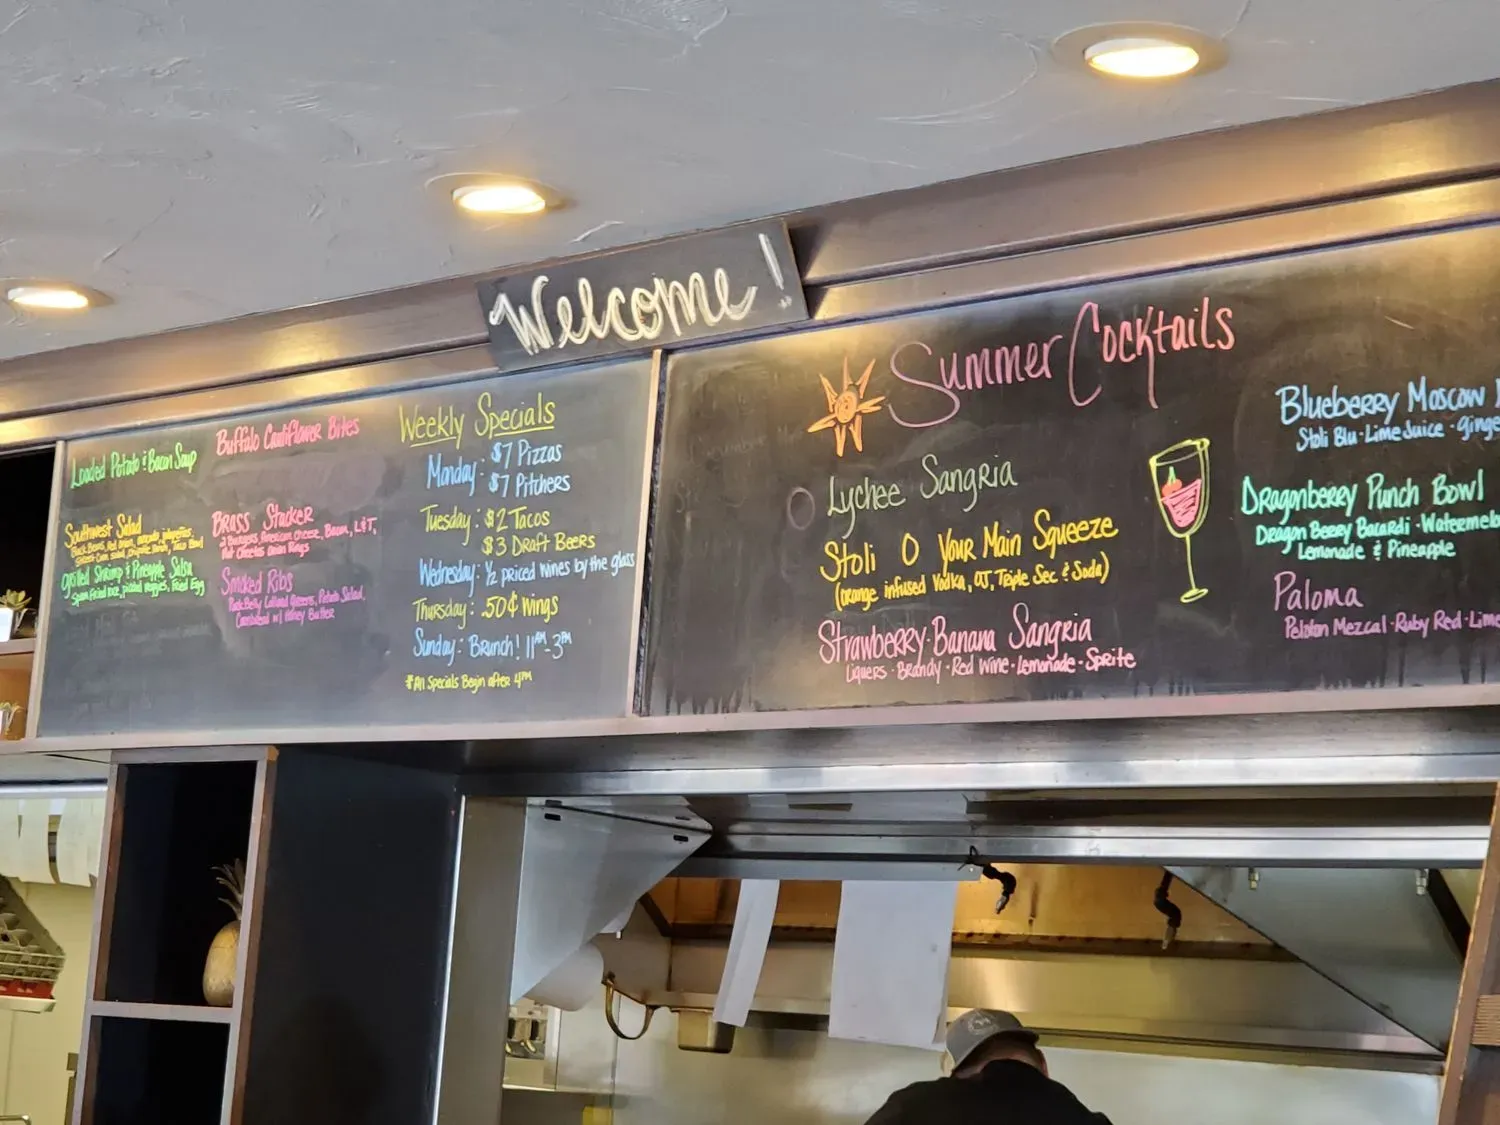 Welcome!
Loaded Potato & Bacon Soup
Southwest Salad
Black Beans, Red Onion, avocado, jalapeños,
Sweet Corn, salad, chipotle Ranch, Taco Bowl
grilled Shrimp & Pineapple Salsa
Spam Fried rice, pickled veggies, Fried Egg
Buffalo Cauliflower Bites
Brass Stacker
2 Burgers, American cheese, Bacon, L&T,
Hot Cheetos Onion Rings
Smoked Ribs
Pork Belly Collard Greens, Potato Salad,
Cornbread w/ Honey Butter
Weekly Specials
Monday: $7 Pizzas
$7 Pitchers
Tuesday: $2 Tacos
$3 Draft Beers
Wednesday: ½ priced wines by the glass
Thursday: .50¢ Wings
Sunday: Brunch! 11AM-3PM
*All Specials Begin after 4PM
Summer Cocktails
Lychee Sangria
Stoli O Your Main Squeeze
(orange infused Vodka, OJ, Triple Sec & Soda)
Strawberry-Banana Sangria
Liquers · Brandy · Red Wine · Lemonade · Sprite
Blueberry Moscow
Stoli Blu · Lime Juice · ginge
Dragonberry Punch Bowl
Dragon Berry Bacardi · Watermelo
Lemonade & Pineapple
Paloma
Peloton Mezcal · Ruby Red · Lime